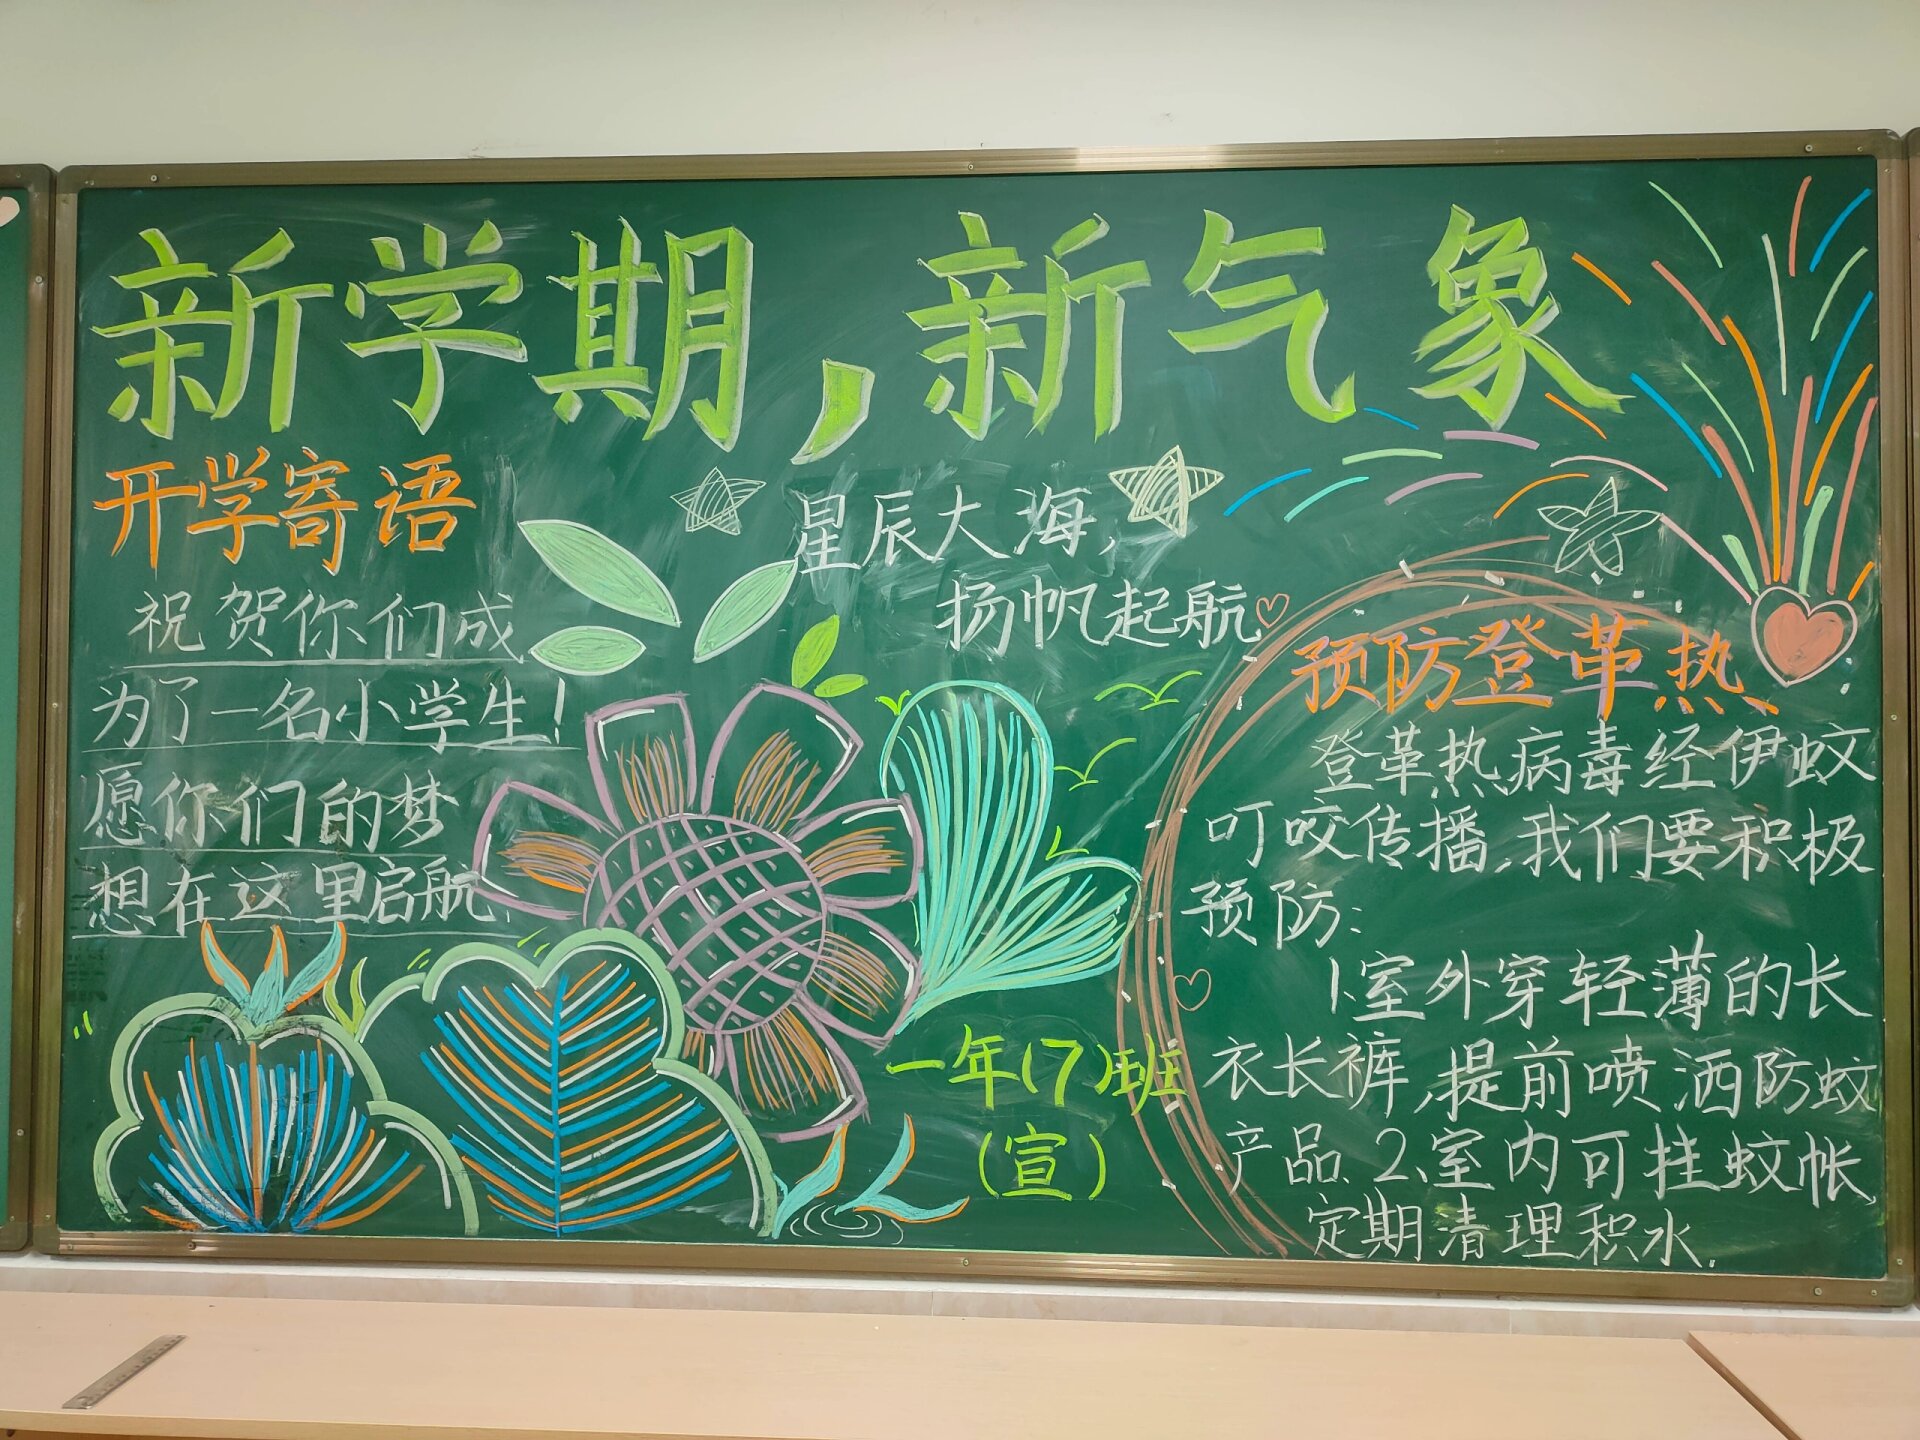 新学期,新气象
开学寄语
祝贺你们成
为了一名小学生!
愿你们的梦
想在这里启航.
星辰大海,
扬帆起航
一年(7)班
(宣)
预防登革热
登革热病毒经伊蚊
叮咬传播,我们要积极
预防:
1、室外穿轻薄的长
衣长裤,提前喷洒防蚊
产品. 2、室内可挂蚊帐,
定期清理积水.